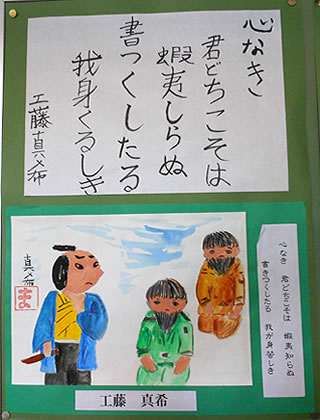 心なき
君どちこそは
蝦夷しらぬ
書つくしたる
我身くるしき
工藤真希
真希
ま
心なき　君どちこそは　蝦夷知らぬ
書きつくしたる　我が身苦しき
工藤　真希